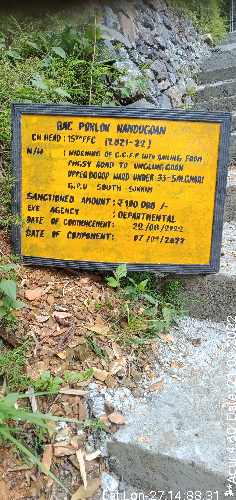 BAC POKLOK NANDUGOAN
C/H HEAD : 15TH FFC (2021-22)
N/W : WIDENING OF C.C.F.P WITH RAILING FROM
PMGSY ROAD TO UNGLUNGDEN
UPPER DOROP WARD UNDER 33-SALGHARI
G.P.U SOUTH - SIKKIM
SANCTIONED AMOUNT : ₹ 1,80 000 /-
EXE AGENCY : DEPARTMENTAL
DATE OF COMMENCEMENT: 22/08/2022
DATE OF COMPONENT: 07/09/2022
Lat Lon-27.14,88.31